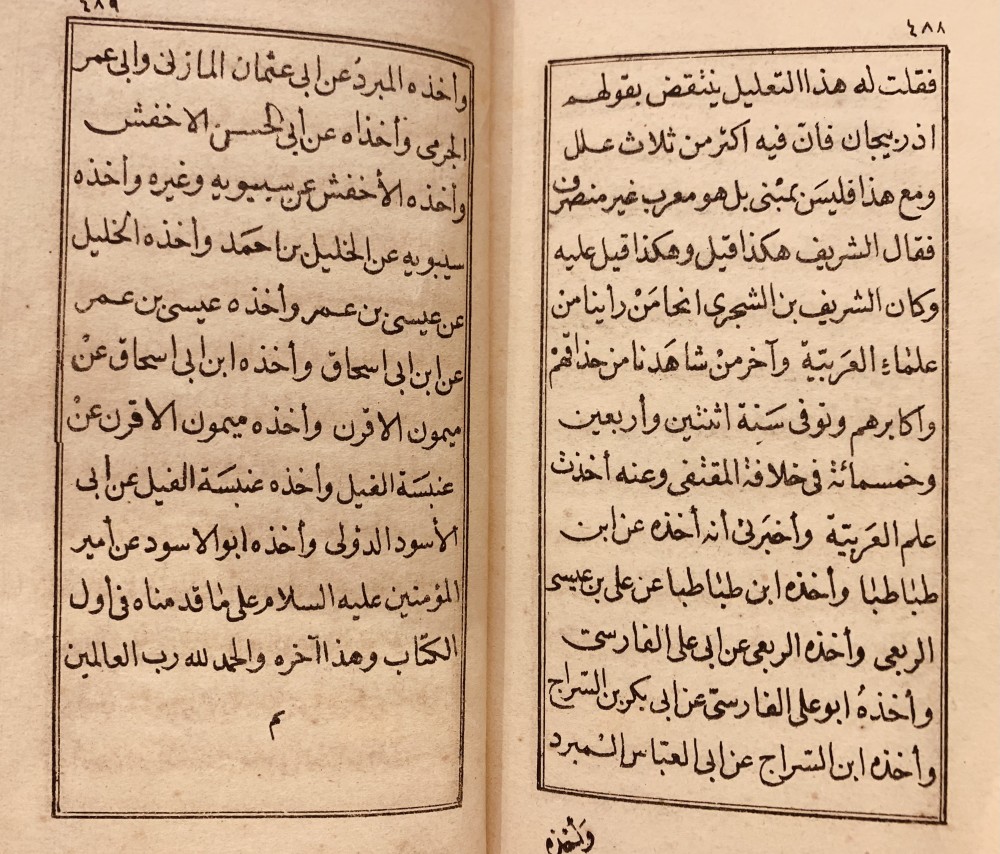 ٤٨٨
فقلت له هذا التعليل ينتقض بقولهم
اذربيجان فانّ فيه اكثر من ثلاث علل
ومع هذا فليسَ بمبْنى بل هو معرب غير منصرف
فقال الشريف هكذا قيل وهكذا قيل عليه
وكان الشريف بن الشجرى انحا مَنْ رأينا من
علمٰاءِ العَربيّة وآخر منْ شاهَدنا من حذاقهمْ
واكابرهم وتوفى سَنة اثنتين وأربعين
وخمسمائة فى خلافة المقتفى وعنه أخذت
علم العَربيّة وأخبَرنى أنه أخذه عن ابن
طبٰاطبٰا وأخذه ابن طبٰاطبا عن على بن عيسى
الربعى وأخذه الربعى عن ابى على الفارسى
وأخذهُ ابو على الفارسىّ عن ابى بكر بن السّراج
وأخذه ابن السّراج عن ابى العبّاس المبرد
وأخذه
٤٨٩
وأخذه المبردُ عن ابى عثمان المازنى وابى عمر
الجرمى وأخذاه عن أبى الحسن الاخفش
وأخذه الأخفش عن سيبويه وغيره وأخذه
سيبويه عن الخليل بن احمَد وأخذه الخليل
عن عيسى بن عمر وأخذه عيسى بن عمر
عن ابن ابى اسحاق وأخذه ابن ابى اسحاق عنْ
ميمون الاقرن وأخذه ميمون الاقرن عنْ
عنبسَة الفيل وأخذه عنبسَة الفيل عن أبى
الأسود الدؤلى وأخذه ابو الاسود عن أمير
المؤمنين عليه السلام على مٰا قدمناه فى أول
الكتاب وهذا آخره والحمد لله رب العالمين
تم